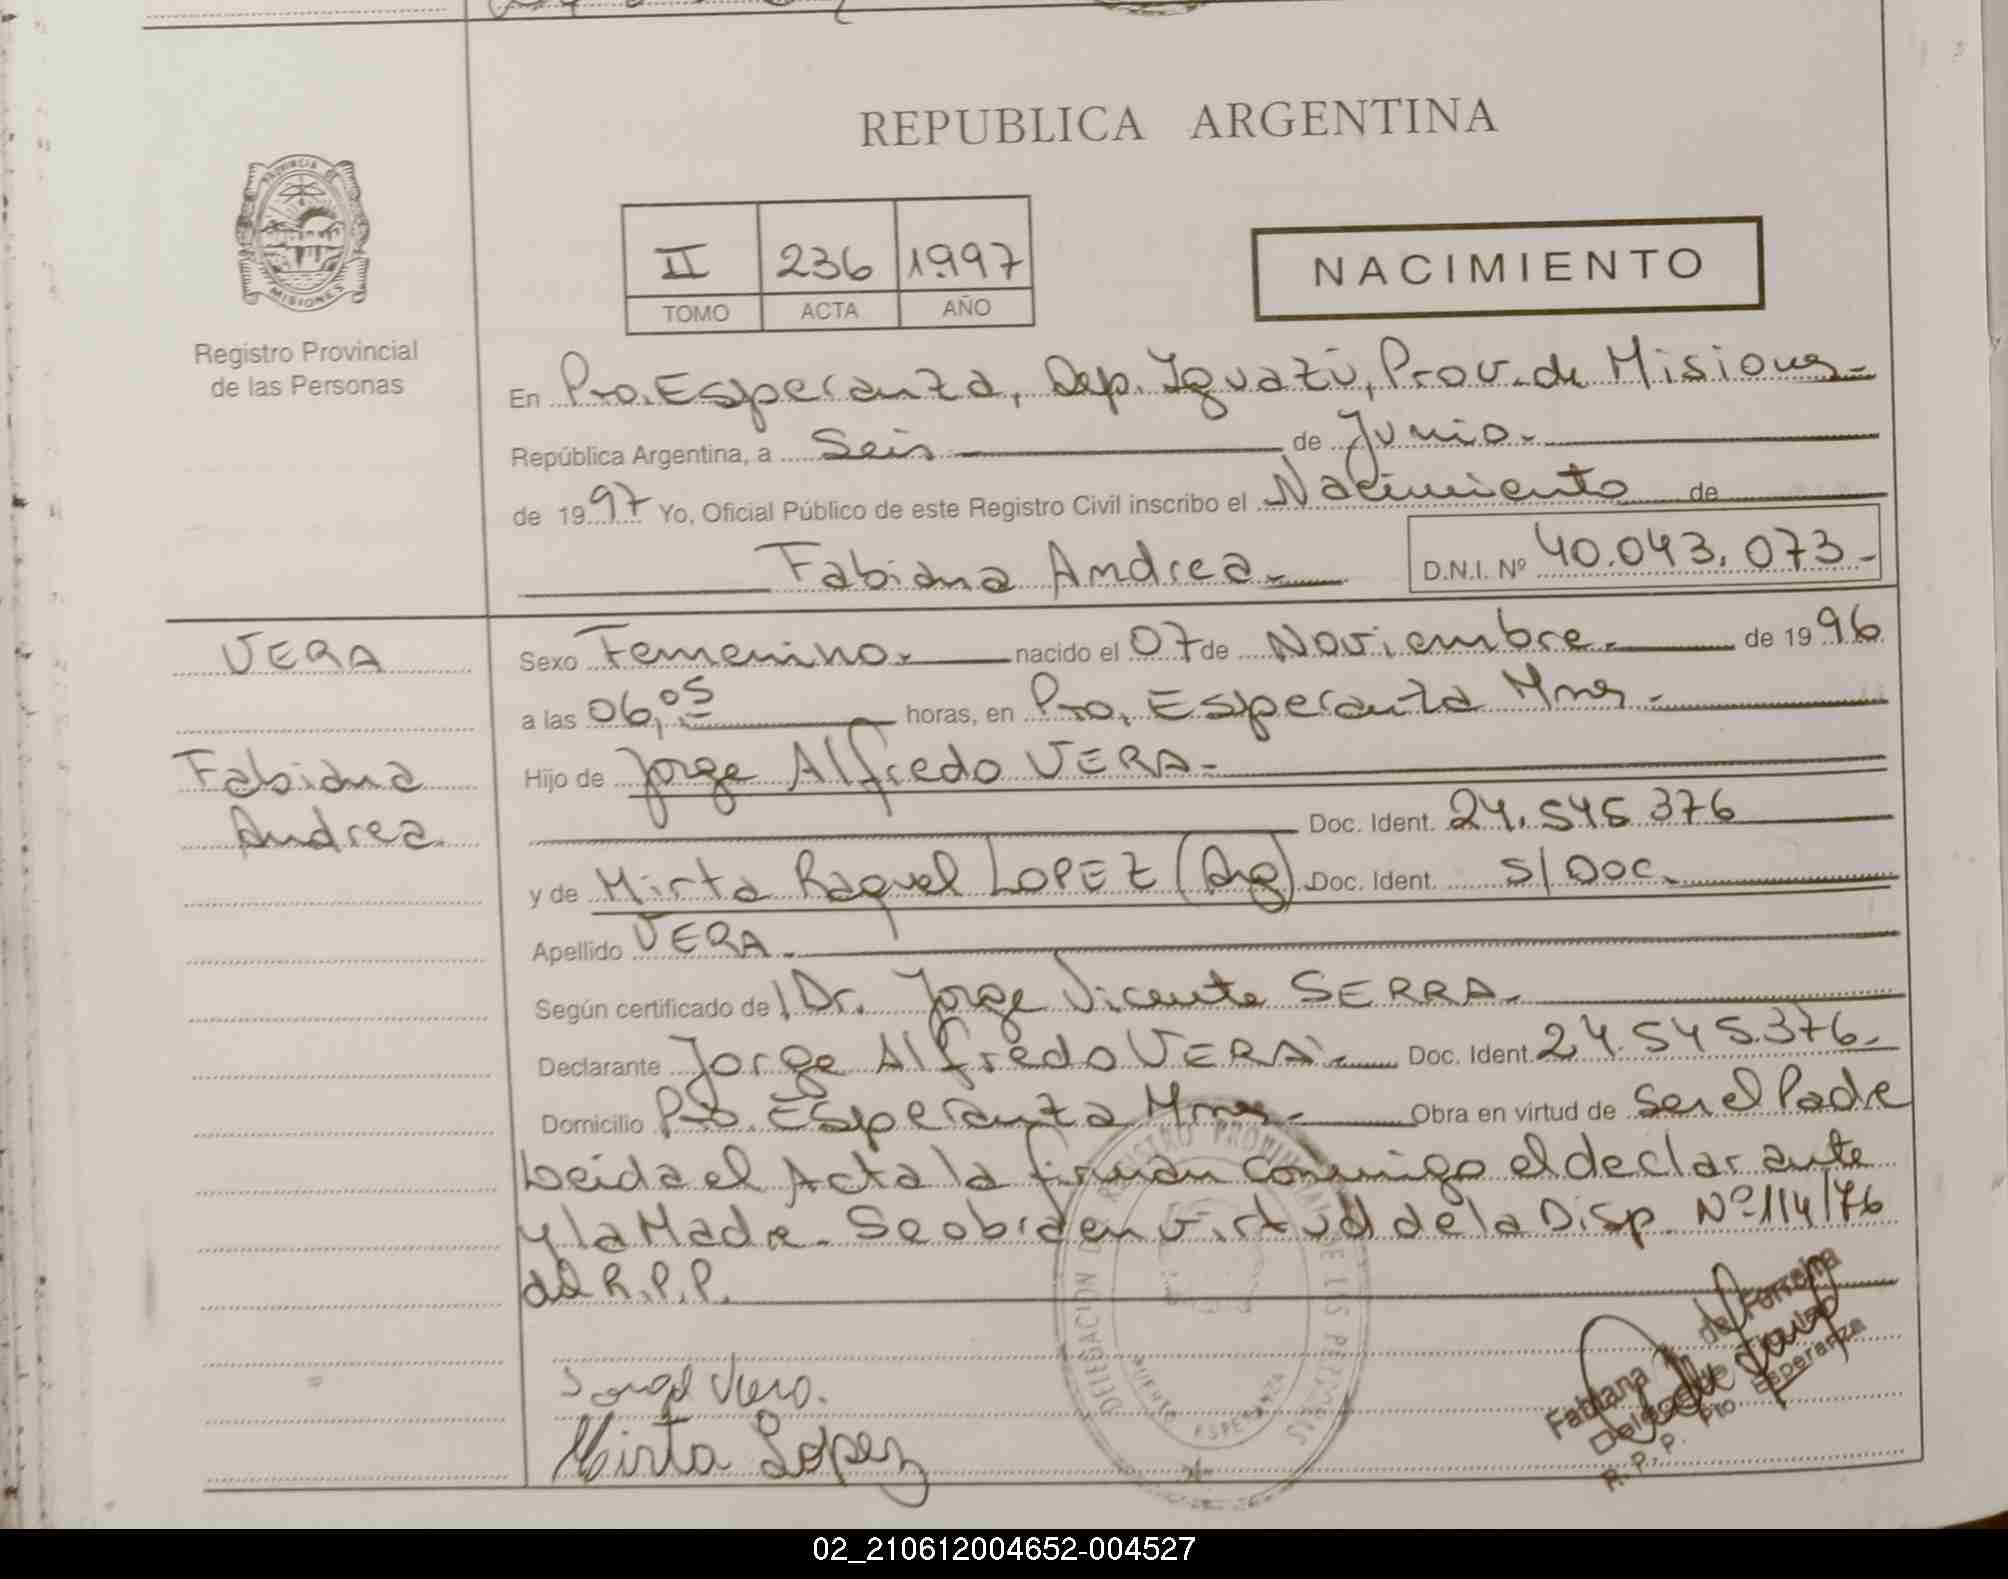 REPUBLICA ARGENTINA
PROVINCIA DE
MISIONES
Registro Provincial
de las Personas
II 236 1997
TOMO ACTA AÑO
NACIMIENTO
En Pto. Esperanza, Dep. Iguazú, Prov. de Misiones-
República Argentina, a Seis de Junio.
de 1997 Yo, Oficial Público de este Registro Civil inscribo el Nacimiento de
Fabiana Andrea. D.N.I. Nº 40.043.073-
VERA
Fabiana
Andrea.
Sexo Femenino. nacido el 07 de Noviembre. de 1996
a las 06,05 horas, en Pto. Esperanza Mnes.
Hijo de Jorge Alfredo VERA-
Doc. Ident. 24.545.376
y de Mirta Raquel LOPEZ (Arg) Doc. Ident. S/Doc.
Apellido VERA.
Según certificado de Dr. Jorge Vicente SERRA.
Declarante Jorge Alfredo VERA.- Doc. Ident. 24.545.376.
Domicilio Pto. Esperanza Mnes. Obra en virtud de Ser el Padre
Leida el Acta la firman conmigo el declarante
y la Madre. Se en virtud de la Disp. Nº 114/76
del R.P.P.
DELEGACION REGISTRO PROVINCIAL DE LAS PERSONAS
PUERTO ESPERANZA
Vera.
Mirta Lopez
Fabiana de Ferreira
R. P. P. Pto Esperanza
02_210612004652-004527